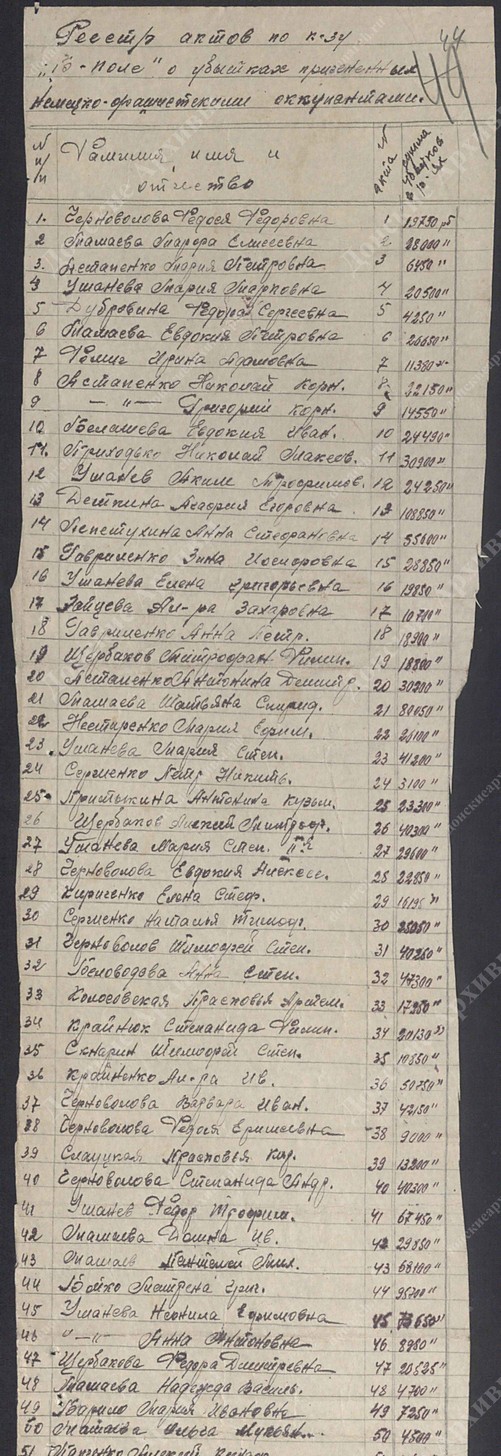 Реестр актов по к-зу
44
"18-поле" о убытках причененных
49
немецко-фашистскими оккупантами.
N п/п Фамилия, имя и отчество N акта сумма убытков в рублях
1. Черноволова Федосья Федоровна 1 19750 рб
2 Мамаева Елисеевна 2 28000"
3. Астапенко Мария Петровна 3 6450"
4 Ушанева Мария Марковна 4 20500"
5 Дубровина Федора Сергеевна 5 4250"
6 Мамаева Евдокия Петровна 6 26650"
7 Ирина Адамовна 7 11380"
8 Астапенко Николай Корн. 8 32150"
9 -"- Григорий Корн. 9 14550"
10 Белашева Евдокия Иван. 10 24490"
11. Приходько Николай Максов. 11 30900"
12 Ушанев Аким Трофимов. 12 24250"
13 Деткина Мария Егоровна 13 108850"
14 Лепетухина Анна Стефановна 14 55600"
15 Гавриленко Зина Иосифовна 15 28850"
16 Ушанева Елена Григорьевна 16 19850"
17 Зайцева Ал-ра Захаровна 17 10740"
18 Гавриленко Анна Петр. 18 18900"
19 Щербаков Митрофан Филип. 19 18800"
20 Астапенко Антонина Дмитр. 20 30200"
21 Мамаева Татьяна Спирид. 21 80050"
22 Нестеренко Мария Ефим. 22 26100"
23. Ушанева Мария Степ. 23 41200"
24 Сергиенко Петр Никит. 24 3100"
25 Притыкина Антонина Кузьм. 25 23300"
26 Щербаков Алексей Митроф. 26 40300"
27 Ушанева Мария Степ. II-я 27 29600"
28 Черноволова Евдокия Алексее. 28 22850"
29 Кириченко Елена Стеф. 29 16195"
30 Сергиенко Наталья Тимоф. 30 25050"
31 Черноволов Тимофей Степ. 31 40250"
32 Беловодова Анна Степ. 32 47300"
33 Колосовская Прасковья Артем. 33 17250"
34 Крайнюк Степанида Филип. 34 20130"
35 Скнарин Тимофей Степ. 35 10850"
36 Крайненко Ал-ра Ив. 36 50750"
37 Черноволова Варвара Иван. 37 42150"
38 Черноволова Федосья Еримеевна 38 9000"
39 Слауцкая Прасковья Кир. 39 13200"
40 Черноволова Степанида Андр. 40 40300"
41 Ушанев Федор Трофим. 41 67450"
42 Мамаева Домна Ив. 42 29850"
43 Мамаев Пантелей 43 68100"
44 Бойко Григ. 44 95200"
45 Ушанева Неонила Ефимовна 45 73650"
46 "-"- Анна Антоновна 46 8980"
47 Щербакова Федора Дмитревна 47 20535"
48 Мамаева Надежда Василь. 48 4700"
49 Гаврило Мария Ивановна 49 7250"
50 Мамаева Ольга Лукьян. 50 4500"
51 Алексей